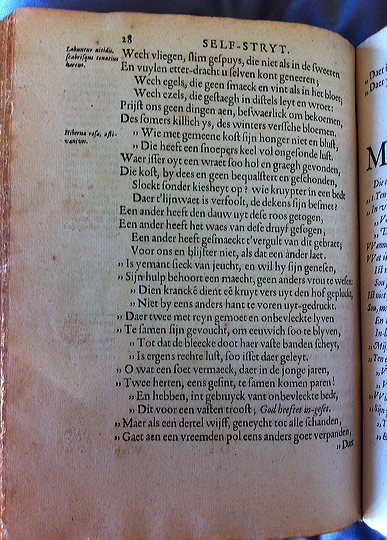 28
SELF-STRYT.
Labuntur nitidis,
scabrisque tenacius
hærent.
Wech vliegen, slim gespuys, die niet als in de sweeren
En vuylen etter-dracht u selven kont geneeren;
Wech egels, die geen smaeck en vint als in het bloet,
Wech ezels, die gestaegh in distels leyt en wroet:
Prijst ons geen dingen aen, beswaerlick om bekoemen,
Des somers killich ys, des winters versche bloemen.
Hiberna rosa, æsti-
vanives.
„ Wie met gemeene kost sijn honger niet en blust,
„ Die heeft een snoepers keel vol ongesonde lust.
Waer isser oyt een wraet soo hol en graegh gevonden,
Die kost, by dees en geen bequalstert en geschonden,
Slockt sonder kiesheyt op? wie kruypter in een bedt
Daer t'lijnwaet is verfoolt, de dekens sijn besmet?
Een ander heeft den dauw uyt dese roos getogen,
Een ander heeft het waes van dese druyf gesogen,
Een ander heeft gesmaeckt t'vergult van dit gebraet;
Voor ons en blijfter niet, als dat een ander laet.
„ Is yemant sieck van jeucht, en wil hy sijn genesen,
„ Sijn hulp behoort een maecht, geen anders vrou te wesen:
„ Dien krancke dient een kruyt vers uyt den hof gepluckt,
„ Niet by eens anders hant te voren uyt-gedruckt.
„ Daer twee met reyn gemoet en onbevleckte lyven
„ Te samen sijn gevoucht, om eeuwich soo te blyven,
„ Tot dat de bleecke doot haer vaste banden scheyt,
„ Is ergens rechte lust, soo isset daer geleyt.
„ O wat een soet vermaeck, daer in de jonge jaren,
„ Twee herten, eens gesint, te samen komen paren!
„ En hebben, int gebruyck vant onbevleckte bedt,
„ Dit voor een vasten troost; God heeftet in-geset.
„ Maer als een dertel wijff, geneycht tot alle schanden,
„ Gaet aen een vreemden pol eens anders goet verpanden,
„ Daer